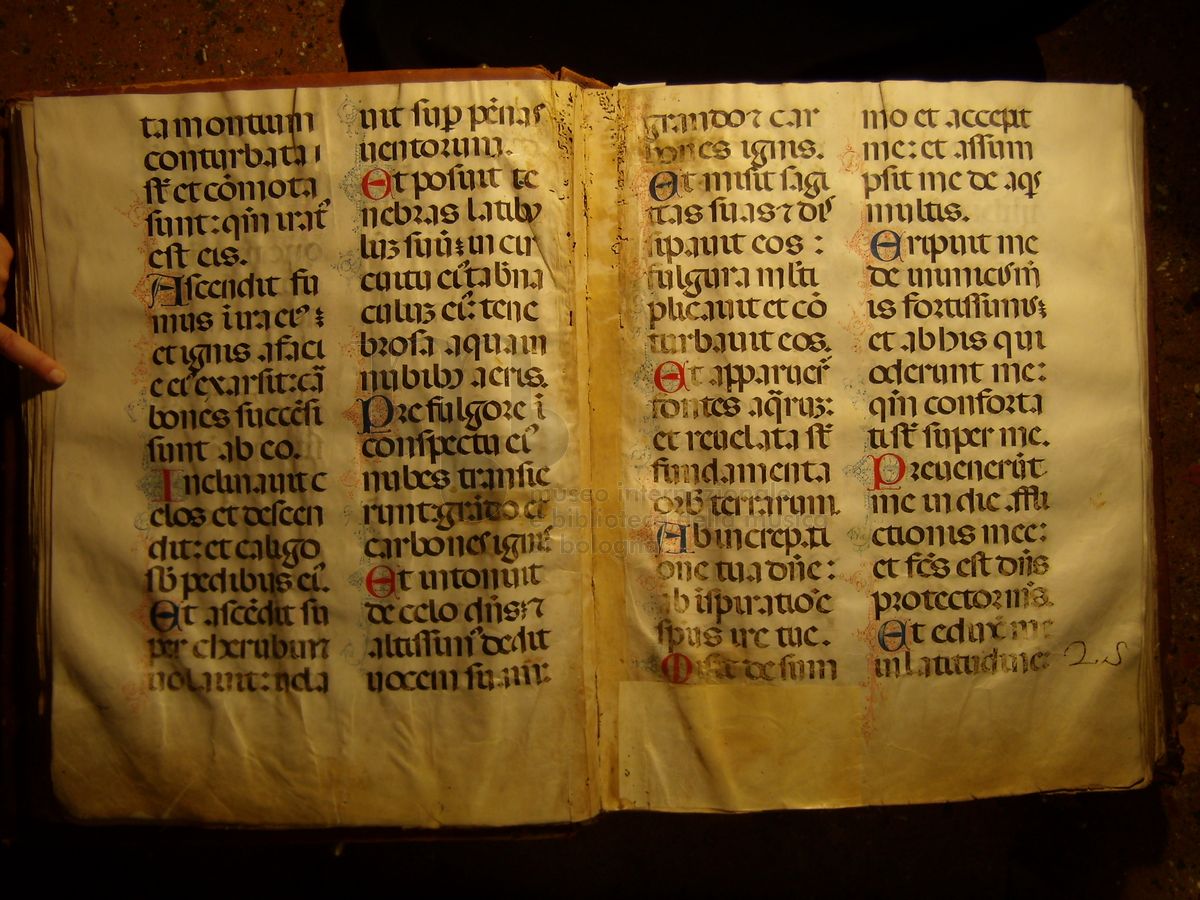 ta montium
conturbata
st̄ et cōmota
sunt: qm̄ irat᷒
est eis.
Ascendit fu
mus ī ira ei᷒ ⁊
et ignis a faci
e ei᷒ exarsit: cā
bones succēsi
sunt ab eo.
Inclinavit c
elos et descen
dit: et caligo
sb̄ pedibus ei᷒.
Et ascēdit su
per cherubim
volavit: vola
vit sup pēnas
ventorum.
Et posuit te
nebras latibu
luʒ suū: in cir
cuitu ei᷒ tab̄na
culuʒ ei᷒: tene
brosa aqua in
nubib᷒ aeris.
Pre fulgore ī
conspectu ei᷒
nubes transie
runt: grādo et
carbones ignis
Et intonuit
de celo dn̄s: ⁊
altissim᷒ dedit
vocem suam:
grando ⁊ car
bones ignis.
Et misit sagi
tas suas ⁊ dis
sipavit eos:
fulgura mlti
plicavit et cō
turbavit eos.
Et apparuer̄
fontes aq̄ruʒ:
et revelata st̄
fundamenta
orb᷒ terrarum.
Ab increpati
one tua dn̄e:
ab īspiratiōe
spūs ire tue.
Misit de sum
mo et accepit
me: et assum
psit me de aqs
multis.
Eripuit me
de inimicis m̄
is fortissimis ⁊
et ab his qui
oderunt me:
qm̄ conforta
ti st̄ super me.
Prevenerūt
me in die affli
ctionis mee:
et fc̄s est dn̄s
protector m̄s.
Et eduxit me
in latitudine:
25
museo internazionale
e biblioteca della musica
bologna